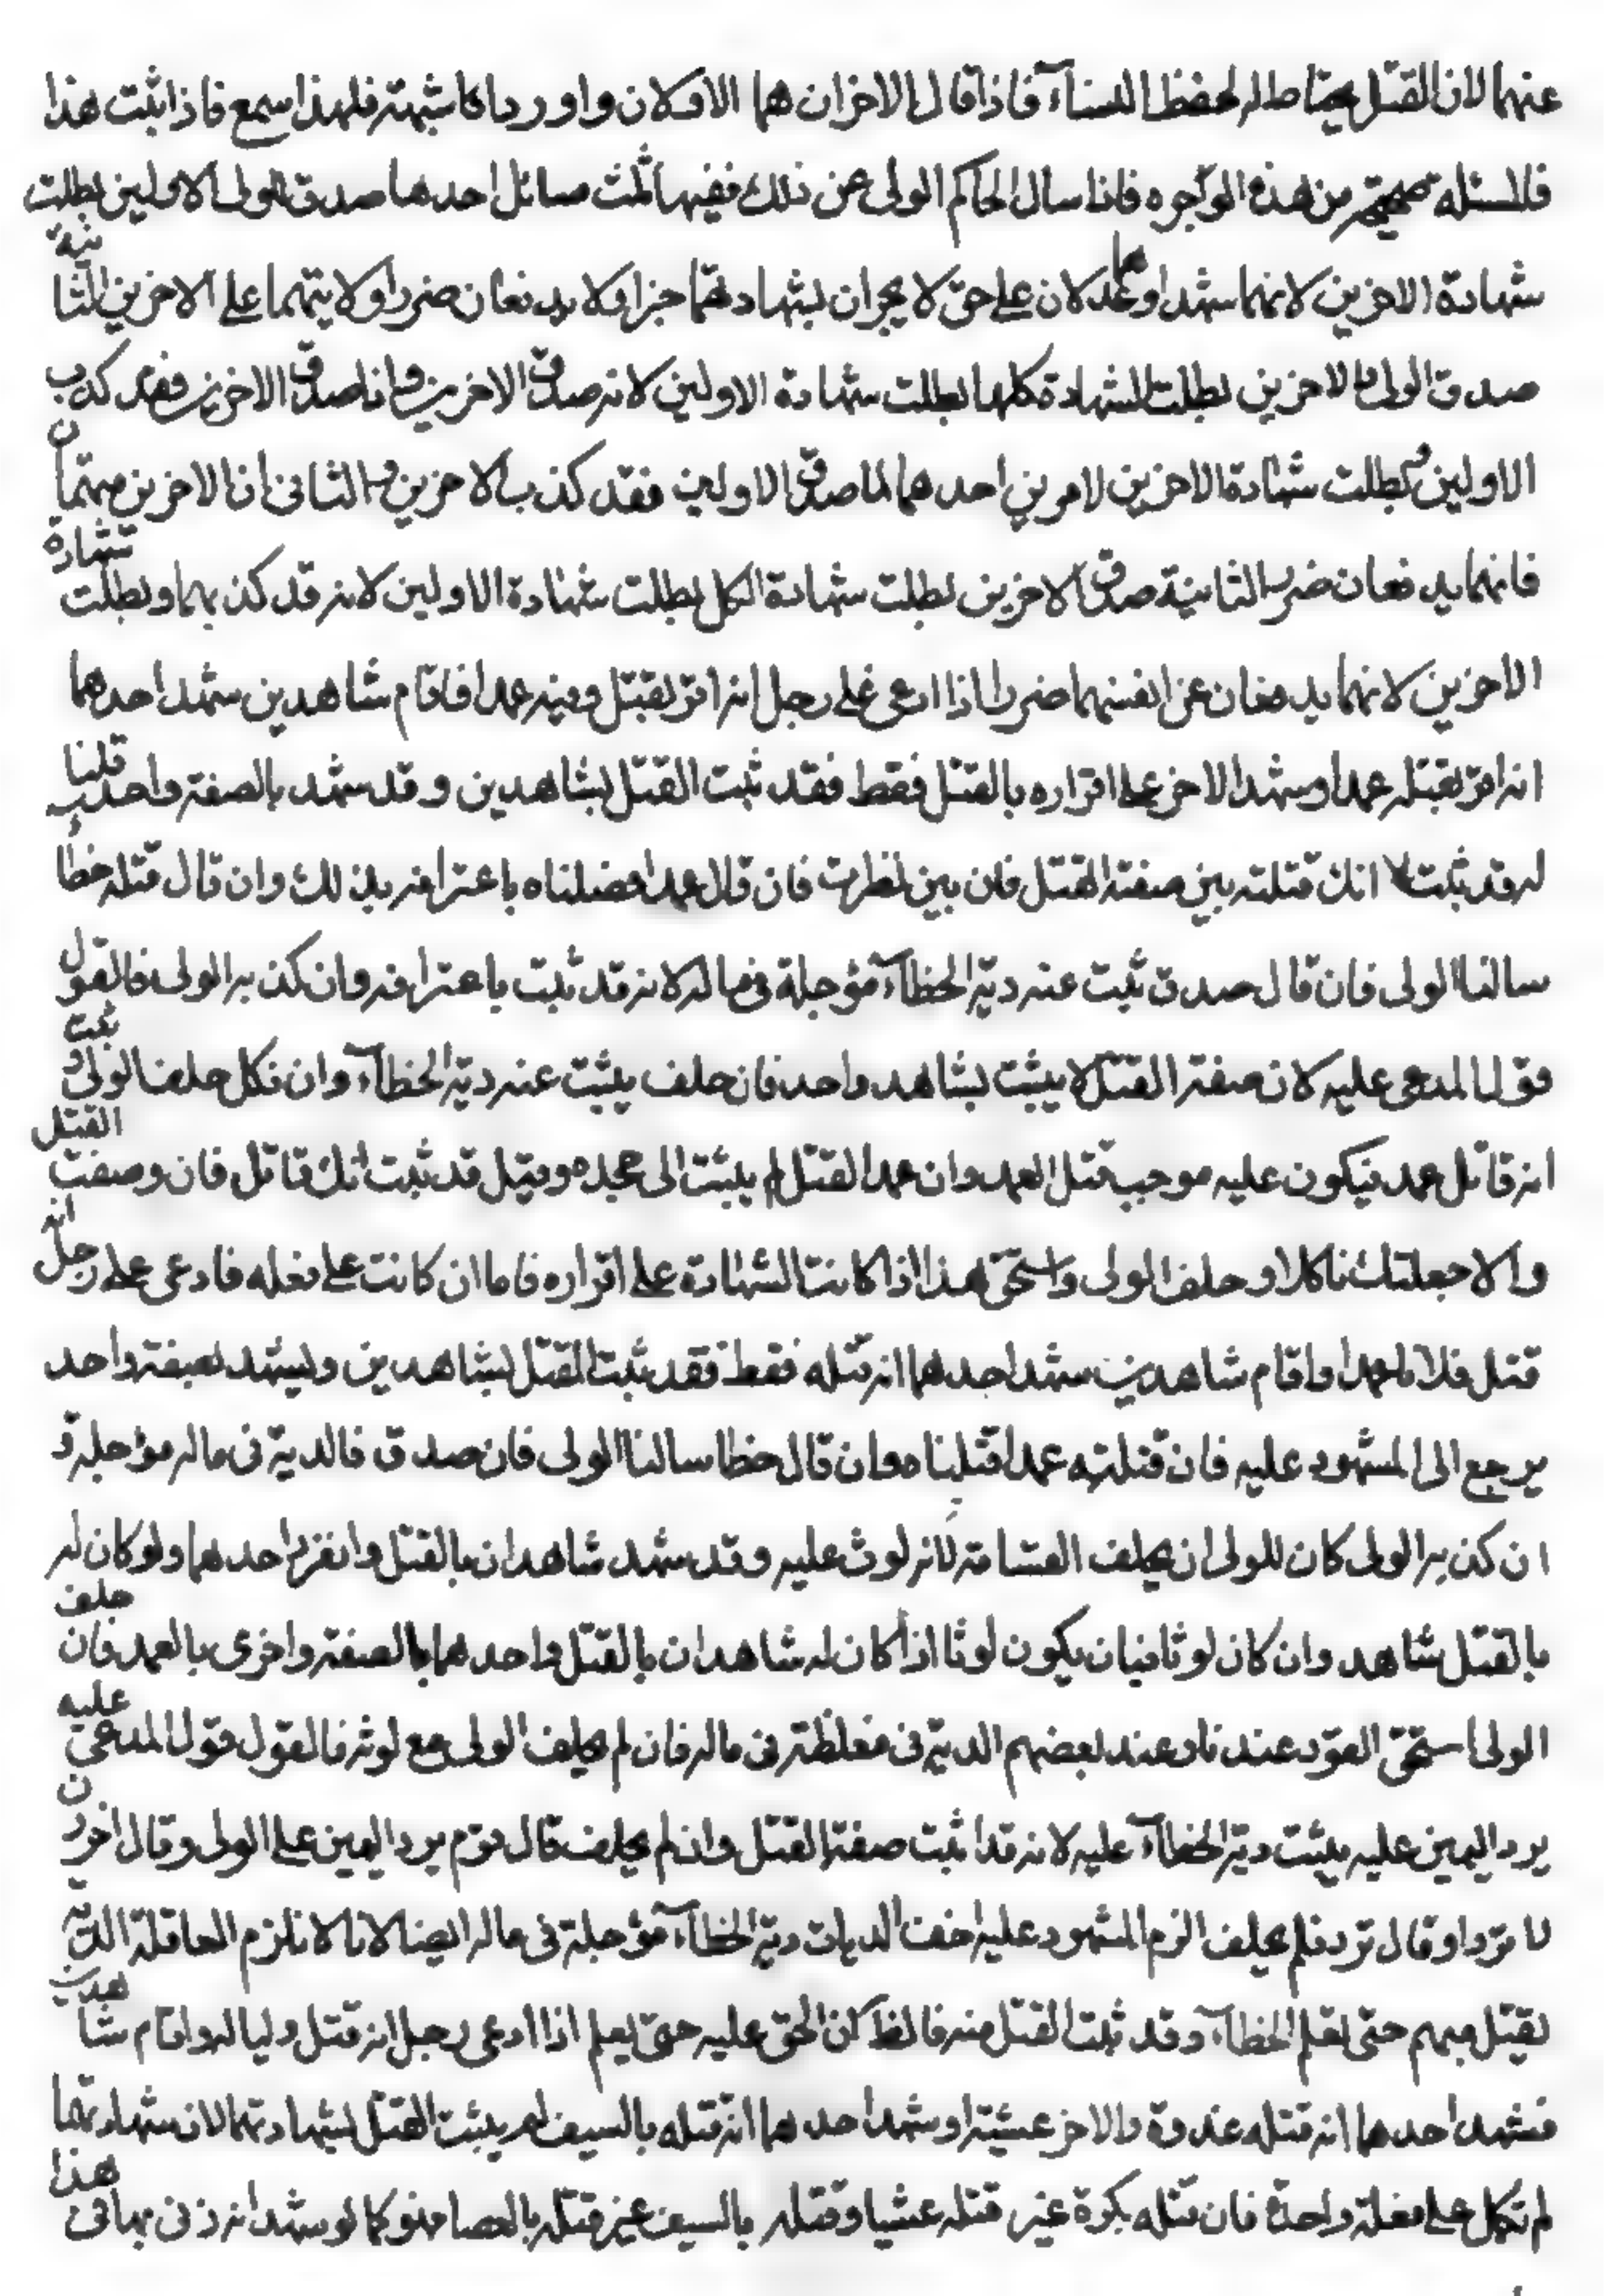 عنهما لان القتل يحتاط له لحفظ الدماء فاذا قال الاخران هما الاولان واوردا كا شبهة فلهذا سمع فاذا ثبت هذا
فالمسئلة صحيحة من هذه الوجوه فاذا سال الحاكم الولى عن ذلك ففيها ثلث مسائل احدها صدق الولى الاولين بطلت
شهادة الاخرين لانهما شهدا وهما عدلان على حق لا يجران بشهادتهما جزا ولا يدفعان ضررا ولا يتهما على الاخرين الثانية
صدق الولى الاخرين بطلت الشهادة كلها بطلت شهادة الاولين لانه صدق الاخرين واذا صدق الاخرين فقد كذب
الاولين وبطلت شهادة الاخرين لامرين احدهما لما صدق الاولين فقد كذب الاخرين والثانى ان الاخرين متهمان
فانهما يدفعان ضررا الثانية صدق الاخرين بطلت شهادة الكل بطلت شهادة الاولين لانه قد كذبهما وبطلت شهادة
الاخرين لانهما يدفعان عن انفسهما ضررا اذا ادعى على رجل انه اقر بقتل وليه عمدا فاقام شاهدين شهد احدهما
انه اقر بقتله عمدا وشهد الاخر على اقراره بالقتل فقط فقد ثبت القتل بشاهدين وقد شهد بالصفة واحد قلنا
له قد ثبت انك قتلته بين صفة القتل فان بين نظرت فان قال عمدا قتلناه باعترافه بذلك وان قال قتله خطأ
سالنا الولى فان قال صدق ثبت عنه دية الخطآء مؤجلة فى ماله لانه قد ثبت باعترافه وان كذبه الولى فالقول
قول المدعى عليه لان صفة القتل لا يثبت بشاهد واحد فان حلف يثبت عنه دية الخطآء وان نكل حلفنا الولى وثبت
انه قاتل عمد فيكون عليه موجب قتل العمد وان عمد القتل لم يثبت الى جحده وقيل قد ثبت انك قاتل فان وصفت القتل
والا جعلناك ناكلا وحلف الولى واستحق هذا اذا كانت الشهادة على اقراره فاما ان كانت على فعله فادعى على رجل انه
قتل فلانا عمدا واقام شاهدين شهد احدهما انه قتله فقط فقد ثبت القتل بشاهدين ويشهد بصفة واحد
يرجع الى المشهود عليه فان قتلته عمدا قتلناه وان قال خطا سالنا الولى فان صدق فالدية فى ماله مؤجلة و
ان كذبه الولى كان للولى ان يحلف القسامة لانه لوث عليه وقد شهد شاهدان بالقتل وانفرد احدهما ولو كان له
بالقتل شاهد وان كان لوثا فبان يكون لوثا اذا كان له شاهدان بالقتل واحدهما بالصفة واخرى بالعمد فان حلف
الولى استحق القود عندنا وعند بعضهم الدية فى مغلظة فى ماله فان لم يحلف الولى مع لوثه فالقول قول المدعى عليه
يرد اليمين عليه يثبت دية الخطآء عليه لانه قد اثبت صفة القتل وان لم يحلف قال قوم يرد اليمين على الولى وقال اخرون
لا ترد او قال ترد فلم يحلف الزم المشهود عليه اخف الديات دية الخطآء مؤجلة فى ماله ايضا لانا لا نلزم العاقلة الدية
بقتل مبهم حتى نعلم الخطآء وقد ثبت القتل منه فالظ كان الحق عليه حتى يعلم اذا ادعى رجل انه قتل وليا له واقام شاهدين
فشهد احدهما انه قتله غدوة والاخر عشية او شهد احدهما انه قتله بالسيف لم يثبت القتل بشهادتهما لان شهادتهما
لم تكمل على فعلة واحدة فان قتله بكرة غير قتله عشيا وقتله بالسيف غير قتله بالعصا فهو كما لو شهد انه زنى بها فى هذا